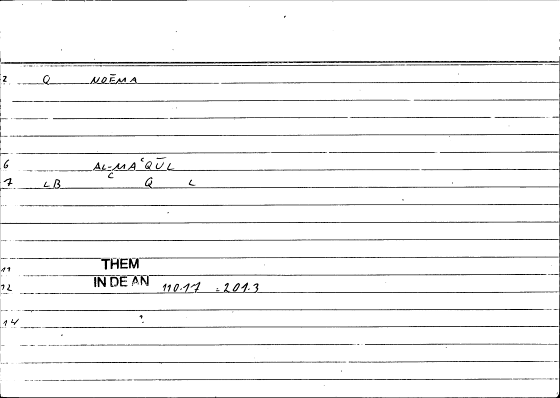 2 Q NOĒMA
6 AL-MAʿQŪL
7 LB C Q L
11 THEM
12 IN DE AN 110.17 = 201.3
14